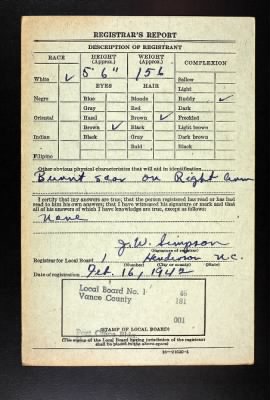 REGISTRAR'S REPORT
DESCRIPTION OF REGISTRANT
RACE HEIGHT (Approx.) WEIGHT (Approx.) COMPLEXION
White ✓ 5' 6" 156 Sallow
EYES HAIR Light
Negro Blue Blonde Ruddy ✓
Gray Red Dark
Oriental Hazel Brown ✓ Freckled
Brown ✓ Black Light brown
Indian Black Gray Dark brown
Bald Black
Filipino
Other obvious physical characteristics that will aid in identification
Burnt scar on Right arm
I certify that my answers are true; that the person registered has read or has had
read to him his own answers; that I have witnessed his signature or mark and that
all of his answers of which I have knowledge are true, except as follows:
None
J.W. Simpson
(Signature of registrar)
Registrar for Local Board 1 Henderson N.C.
(Number) (City or county) (State)
Date of registration Feb. 16, 1942
Local Board No. 1 46
Vance County 181
001
(STAMP OF LOCAL BOARD)
(The stamp of the Local Board having jurisdiction of the registrant
shall be placed in the above space)